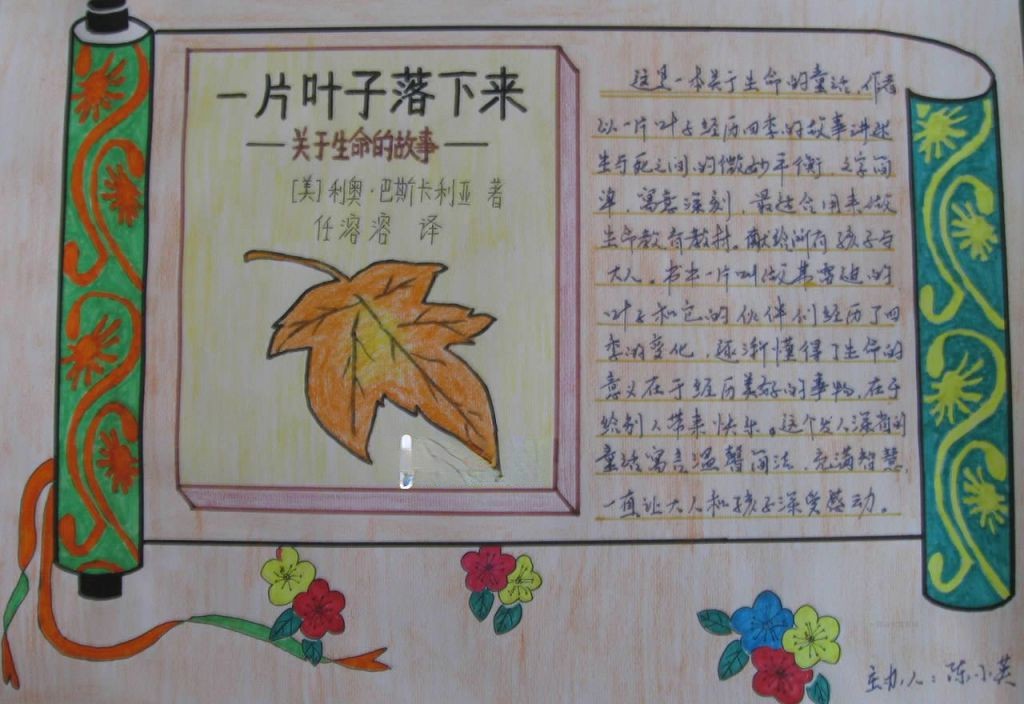 一片叶子落下来
—关于生命的故事—
[美]利奥·巴斯卡利亚 著
任溶溶 译
这是一本关于生命的童话 作者
以一片叶子经历四季的故事讲述
生与死之间的微妙平衡,文字简
单,寓意深刻,最适合用来做
生命教育教材。献给所有孩子与
大人。书中一片叫做弗雷迪的
叶子和它的伙伴们经历了四
季的变化,逐渐懂得了生命的
意义在于经历美好的事物,在于
给别人带来快乐。这个发人深省的
童话寓言温馨简洁,充满智慧,
一直让大人和孩子深受感动。
主办人:陈小英